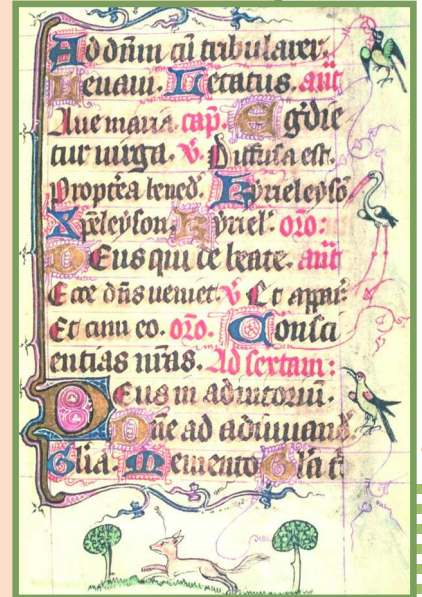 Ad dn̄m cū tribularer.
Leuaui. Letatus. an̄t
Aue maria. cap̄. Egr̄die
tur uirga. v. Diffusa est.
Propt̄ea bened̄. Kyrieleyso᷑
Xp̄eleyson. Kyriel. or̄o:
Deus qui de beate. an̄t
Ecce dn̄s ueniet. v Et appar̄:
Et cum eo. oro. Consci
entias nr̄as. Ad sextam:
Deus in adiutoriū.
Dn̄e ad adiuuand̄.
Glīa. Memento Glīa t